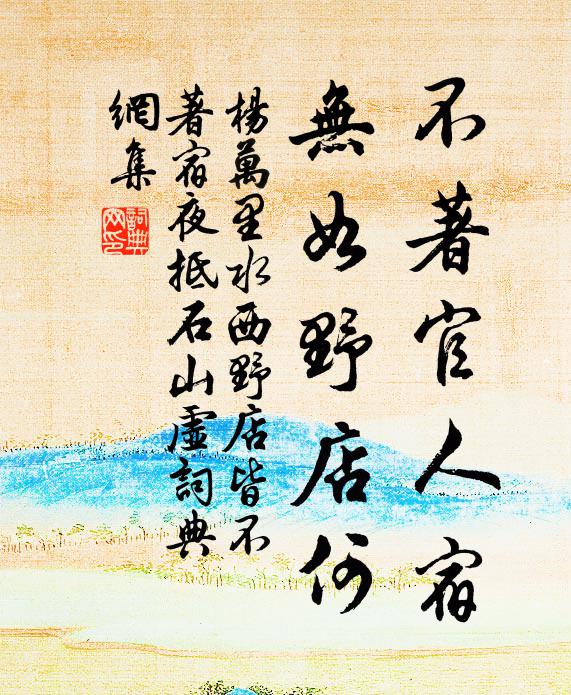 不著官人宿
無如野店何
楊萬里水西野店皆不
著宿夜抵石山虛詞典
網集
詞典
网印